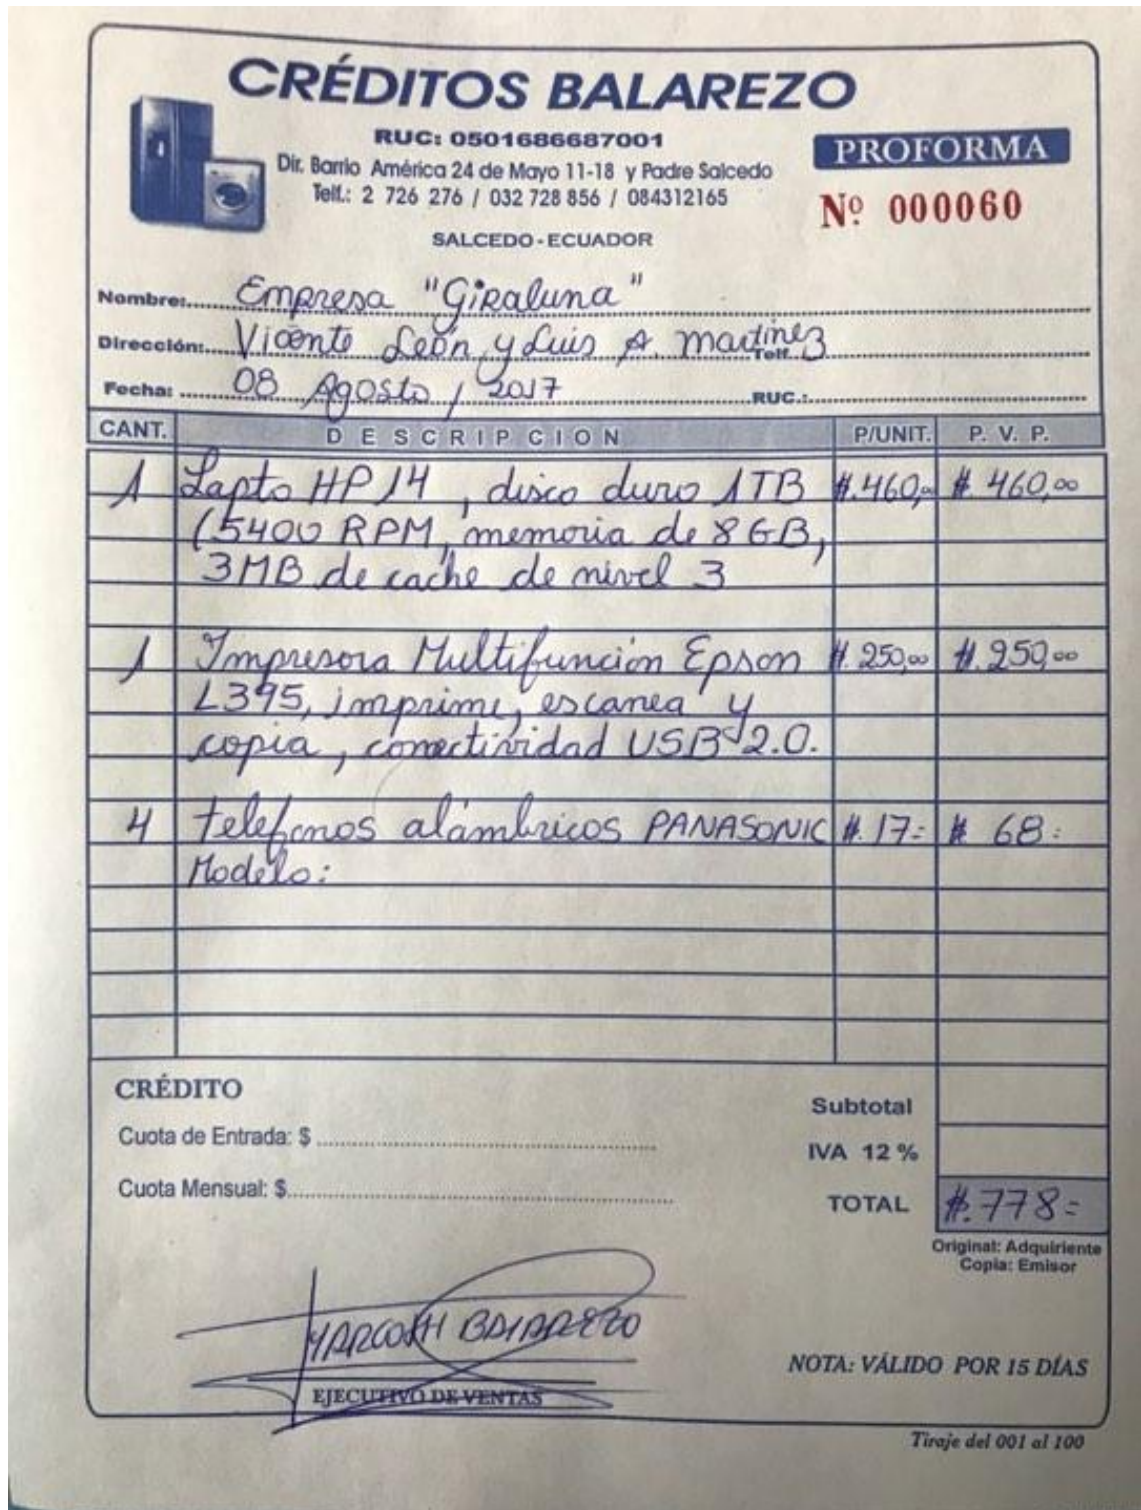 CRÉDITOS BALAREZO
RUC: 0501686687001
Dir. Barrio América 24 de Mayo 11-18 y Padre Salcedo
Telf.: 2 726 276 / 032 728 856 / 084312165
SALCEDO - ECUADOR
PROFORMA
Nº 000060
Nombre: Empresa "Giraluna"
Dirección: Vicente León y Luis A. Martínez Telf.
Fecha: 08 Agosto / 2017 RUC.:
CANT. DESCRIPCION P/UNIT. P. V. P.
1 Lapto HP 14, disco duro 1TB $.460,00 $ 460,00
(5400 RPM, memoria de 8GB,
3MB de cache de nivel 3
1 Impresora Multifunción Epson $.250,00 $.250,00
L395, imprime, escanea y
copia, conectividad USB 2.0.
4 telefonos alámbricos PANASONIC $.17= $ 68=
Modelo:
CRÉDITO
Cuota de Entrada: $
Cuota Mensual: $
Subtotal
IVA 12 %
TOTAL $.778=
Original: Adquiriente
Copia: Emisor
MARCO BALAREZO
EJECUTIVO DE VENTAS
NOTA: VÁLIDO POR 15 DÍAS
Tiraje del 001 al 100